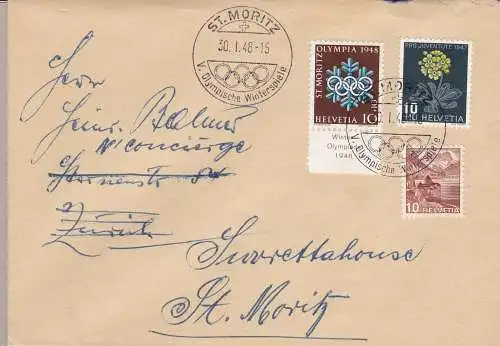 ST. MORITZ
30. I. 48-15
V. Olympische Winterspiele
ST. MORITZ OLYMPIA 1948
10
HELVETIA
Winter
Olympiade
1948
PRO JUVENTUTE 1947
10
HELVETIA
V. Olympische Winterspiele
10 HELVETIA
Herr
Heinr. Bollmer
Concierge
Zürich
Suvrettahouse
St. Moritz